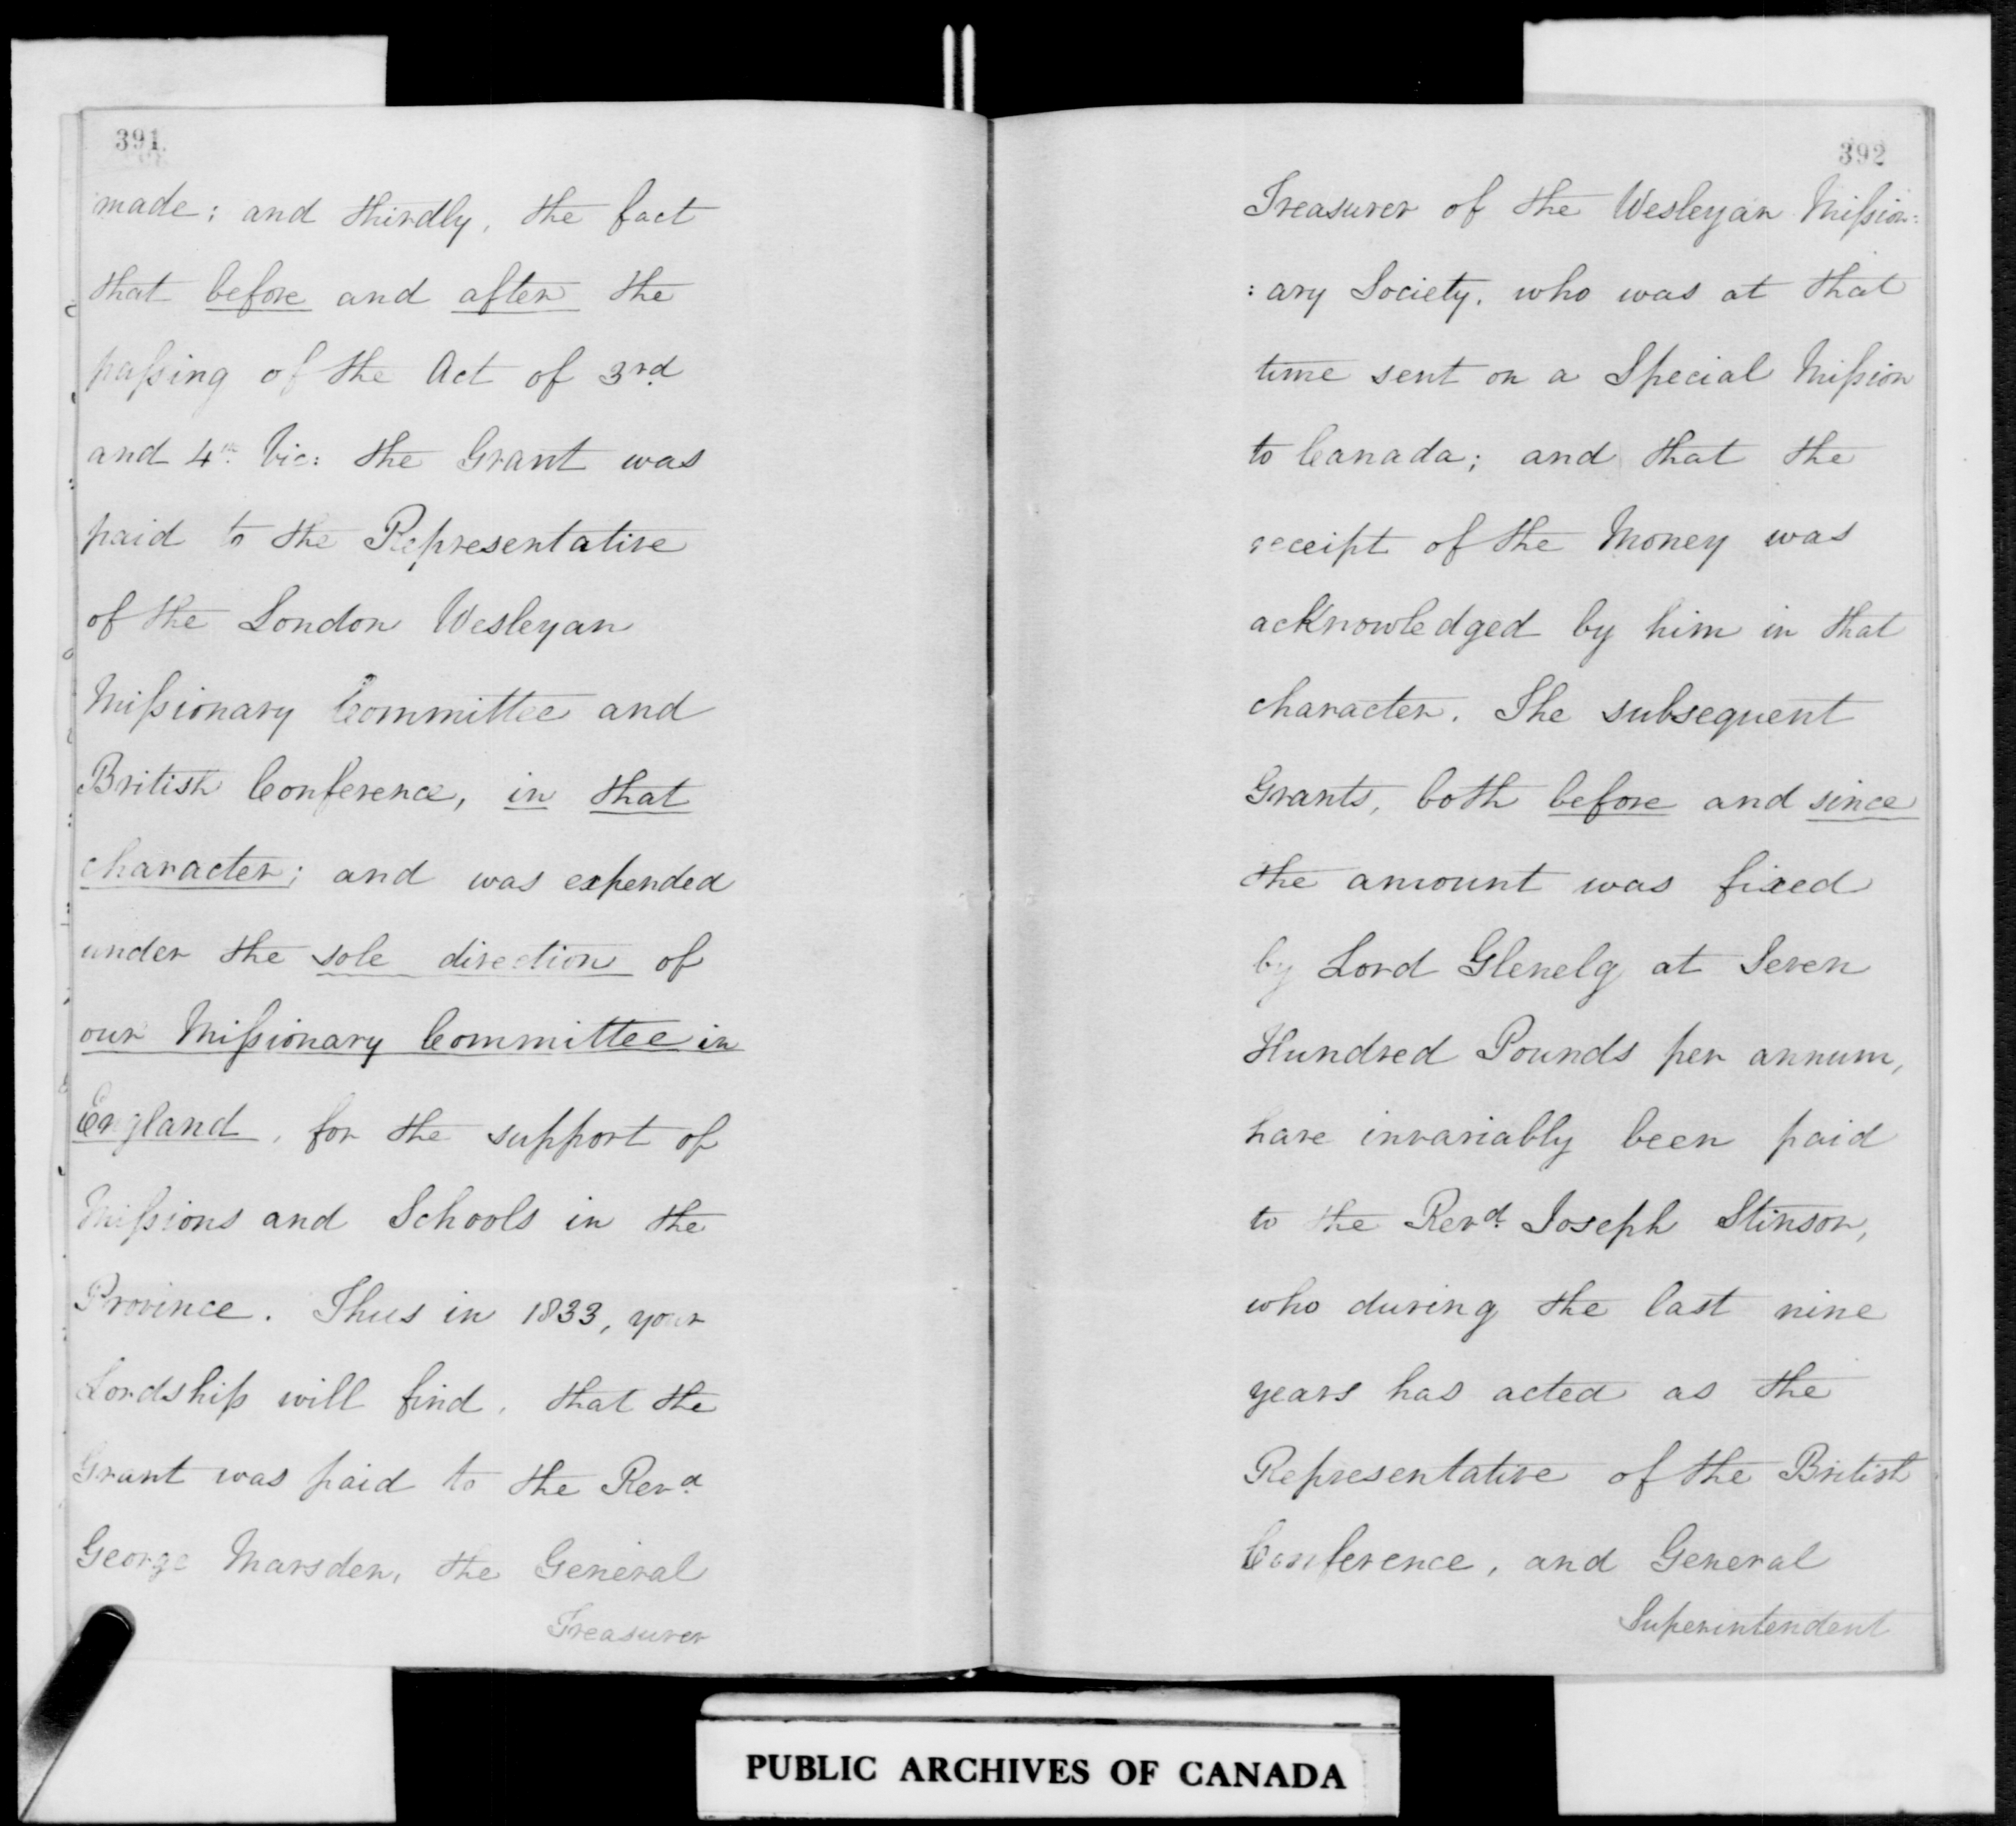 391.
made; and thirdly, the fact
that before and after the
passing of the Act of 3rd
and 4th Vic: the Grant was
paid to the Representative
of the London Wesleyan
Missionary Committee and
British Conference, in that
character; and was expended
under the sole direction of
our Missionary Committee in
England, for the support of
Missions and Schools in the
Province. Thus in 1833, your
Lordship will find, that the
Grant was paid to the Revd
George Marsden, the General
Treasurer
392
Treasurer of the Wesleyan Mission:
:ary Society, who was at that
time sent on a Special Mission
to Canada; and that the
receipt of the Money was
acknowledged by him in that
character. The subsequent
Grants, both before and since
the amount was fixed
by Lord Glenelg at Seven
Hundred Pounds per annum,
have invariably been paid
to the Revd Joseph Stinson,
who during the last nine
years has acted as the
Representative of the British
Conference, and General
Superintendent
PUBLIC ARCHIVES OF CANADA